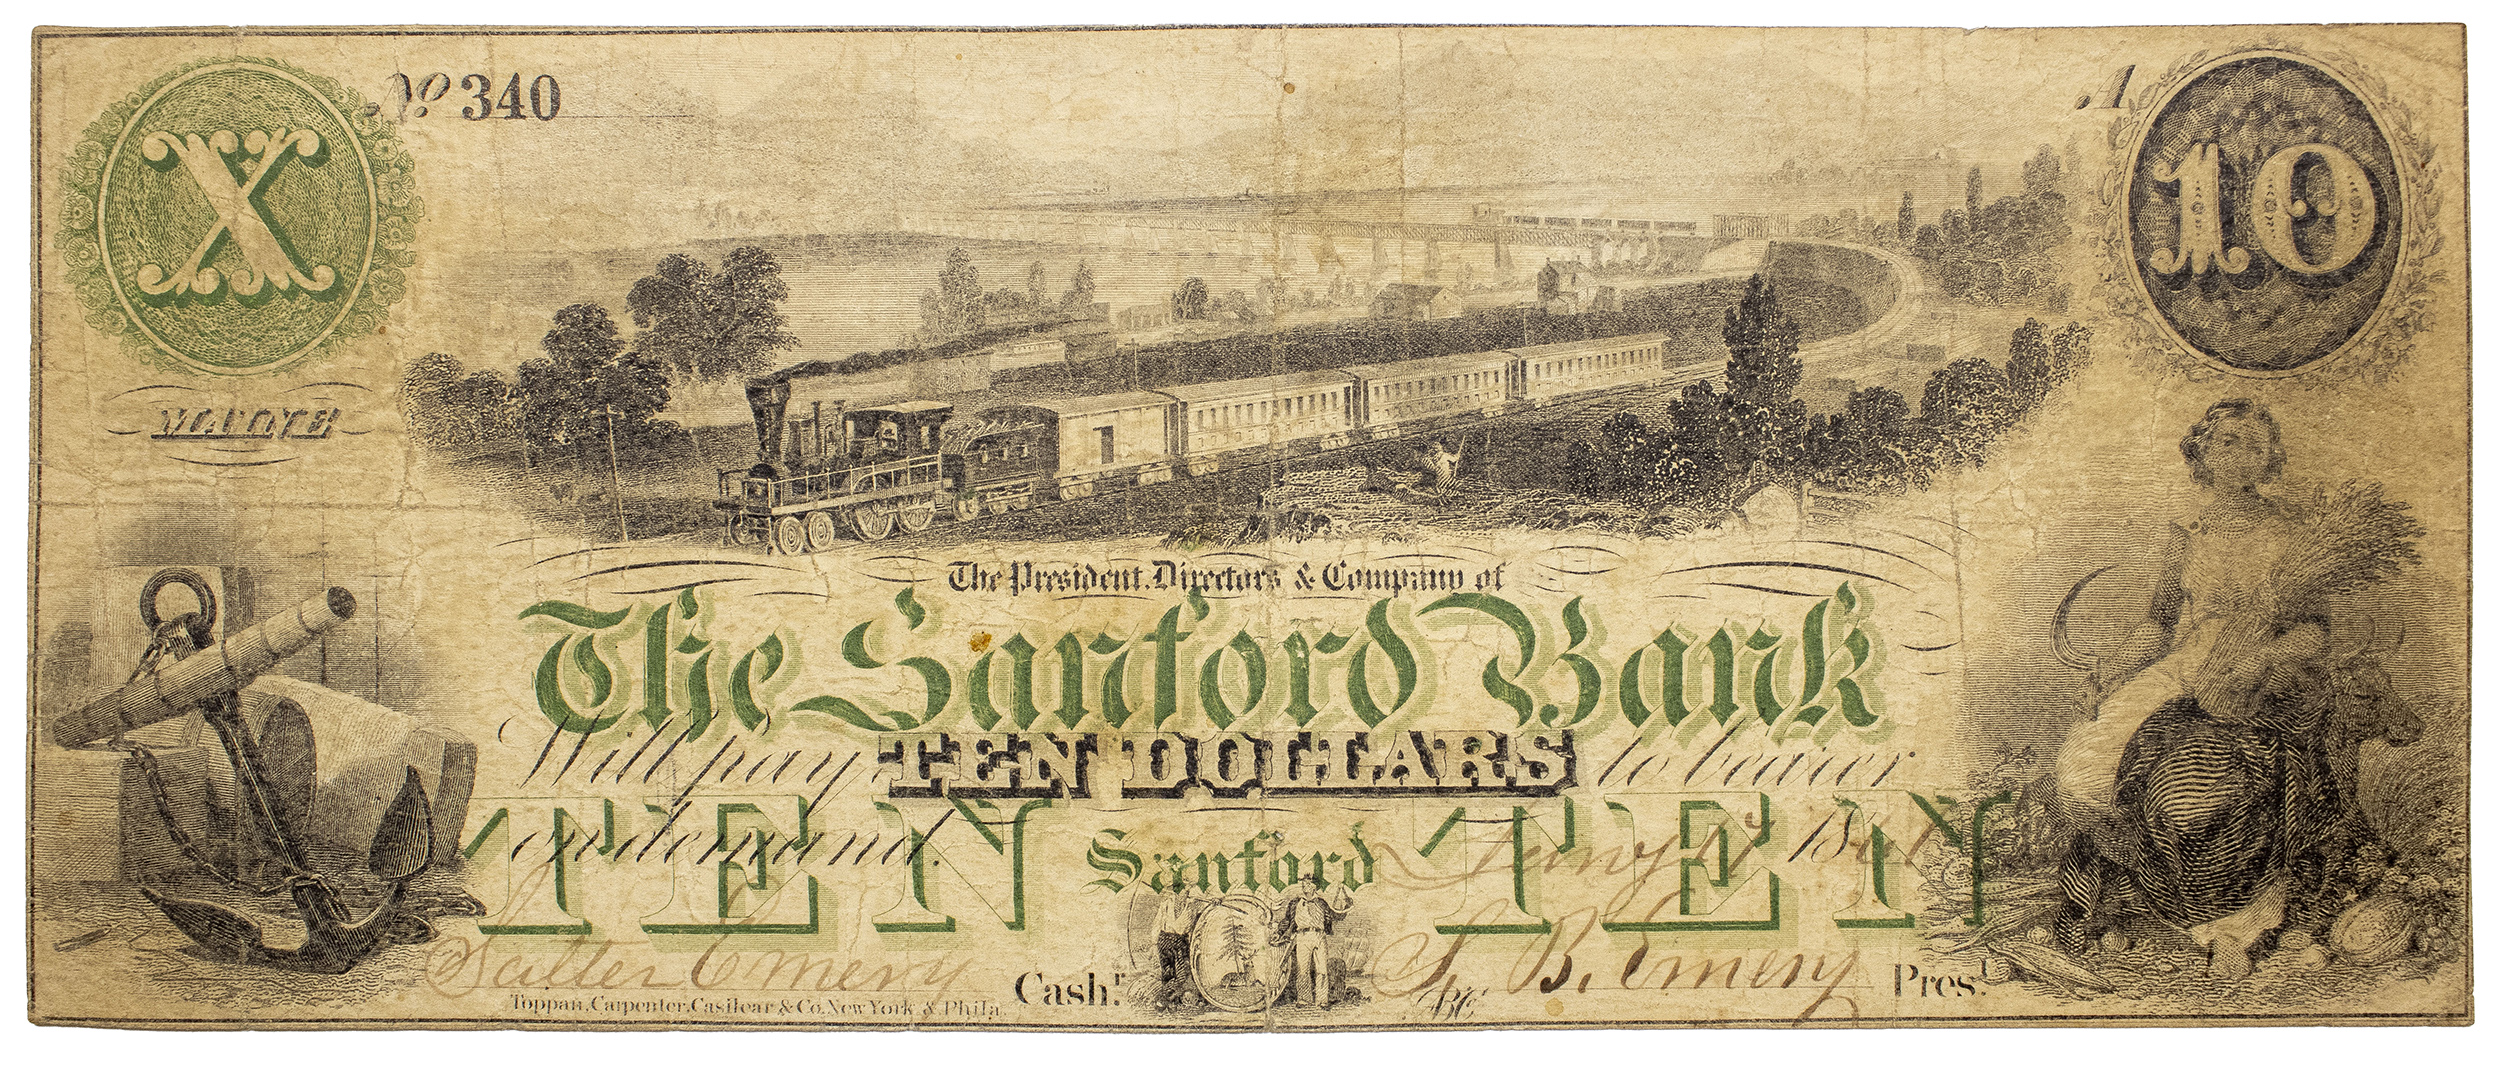 X
No 340
A
10
The President, Directors & Company of
The Sanford Bank
Will pay TEN DOLLARS to bearer
TEN TEN
on demand. Sanford Jany 1st 1861
Salter Emery Cashr. S. B. Emery Prest.
Toppan, Carpenter, Casilear & Co. New York & Phila.